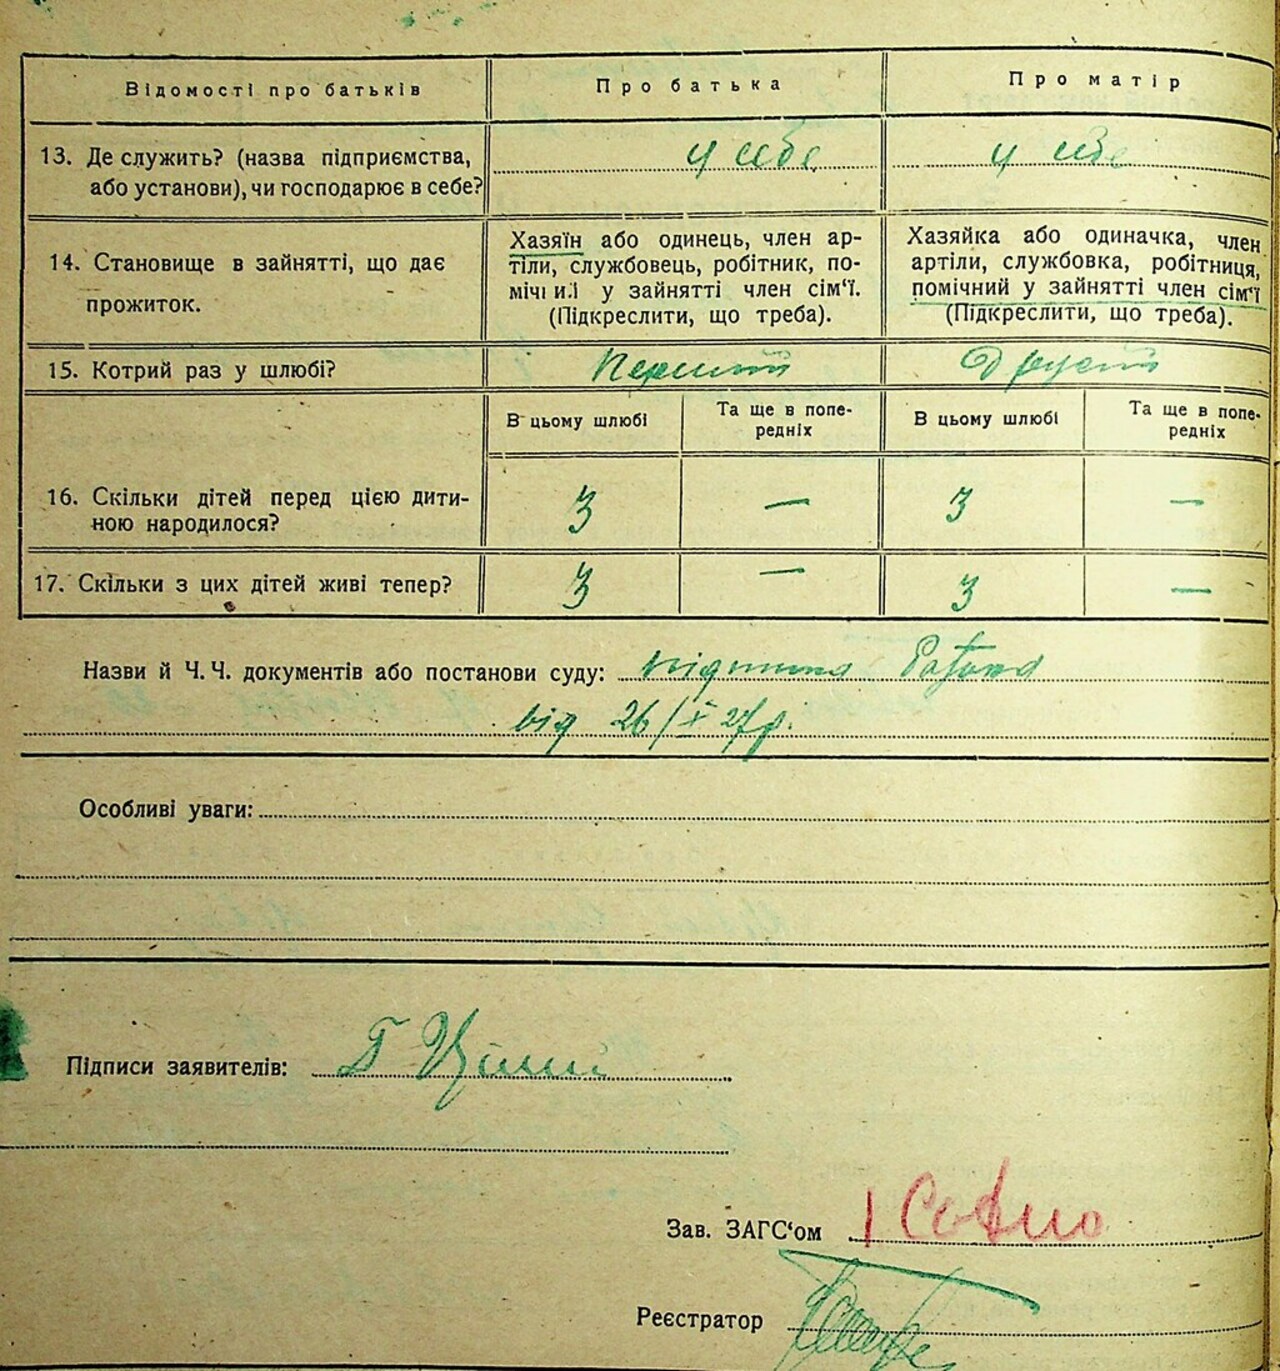 Відомості про батьків Про батька Про матір
13. Де служить? (назва підприємства, у себе у себе
або установи), чи господарює в себе?
14. Становище в зайнятті, що дає
прожиток.
Хазяїн або одинець, член ар-
тіли, службовець, робітник, по-
мічний у зайнятті член сім‘ї.
(Підкреслити, що треба).
Хазяйка або одиначка, член
артіли, службовка, робітниця,
помічний у зайнятті член сім‘ї
(Підкреслити, що треба).
15. Котрий раз у шлюбі? Перший Другий
В цьому шлюбі
Та ще в попе-
редніх
В цьому шлюбі
Та ще в попе-
редніх
16. Скільки дітей перед цією дити-
ною народилося?
3 — 3 —
17. Скільки з цих дітей живі тепер? 3 — 3 —
Назви й Ч. Ч. документів або постанови суду:
від 26/X 27 р.
Особливі уваги:
Підписи заявителів:
Зав. ЗАГС‘ом
Реєстратор